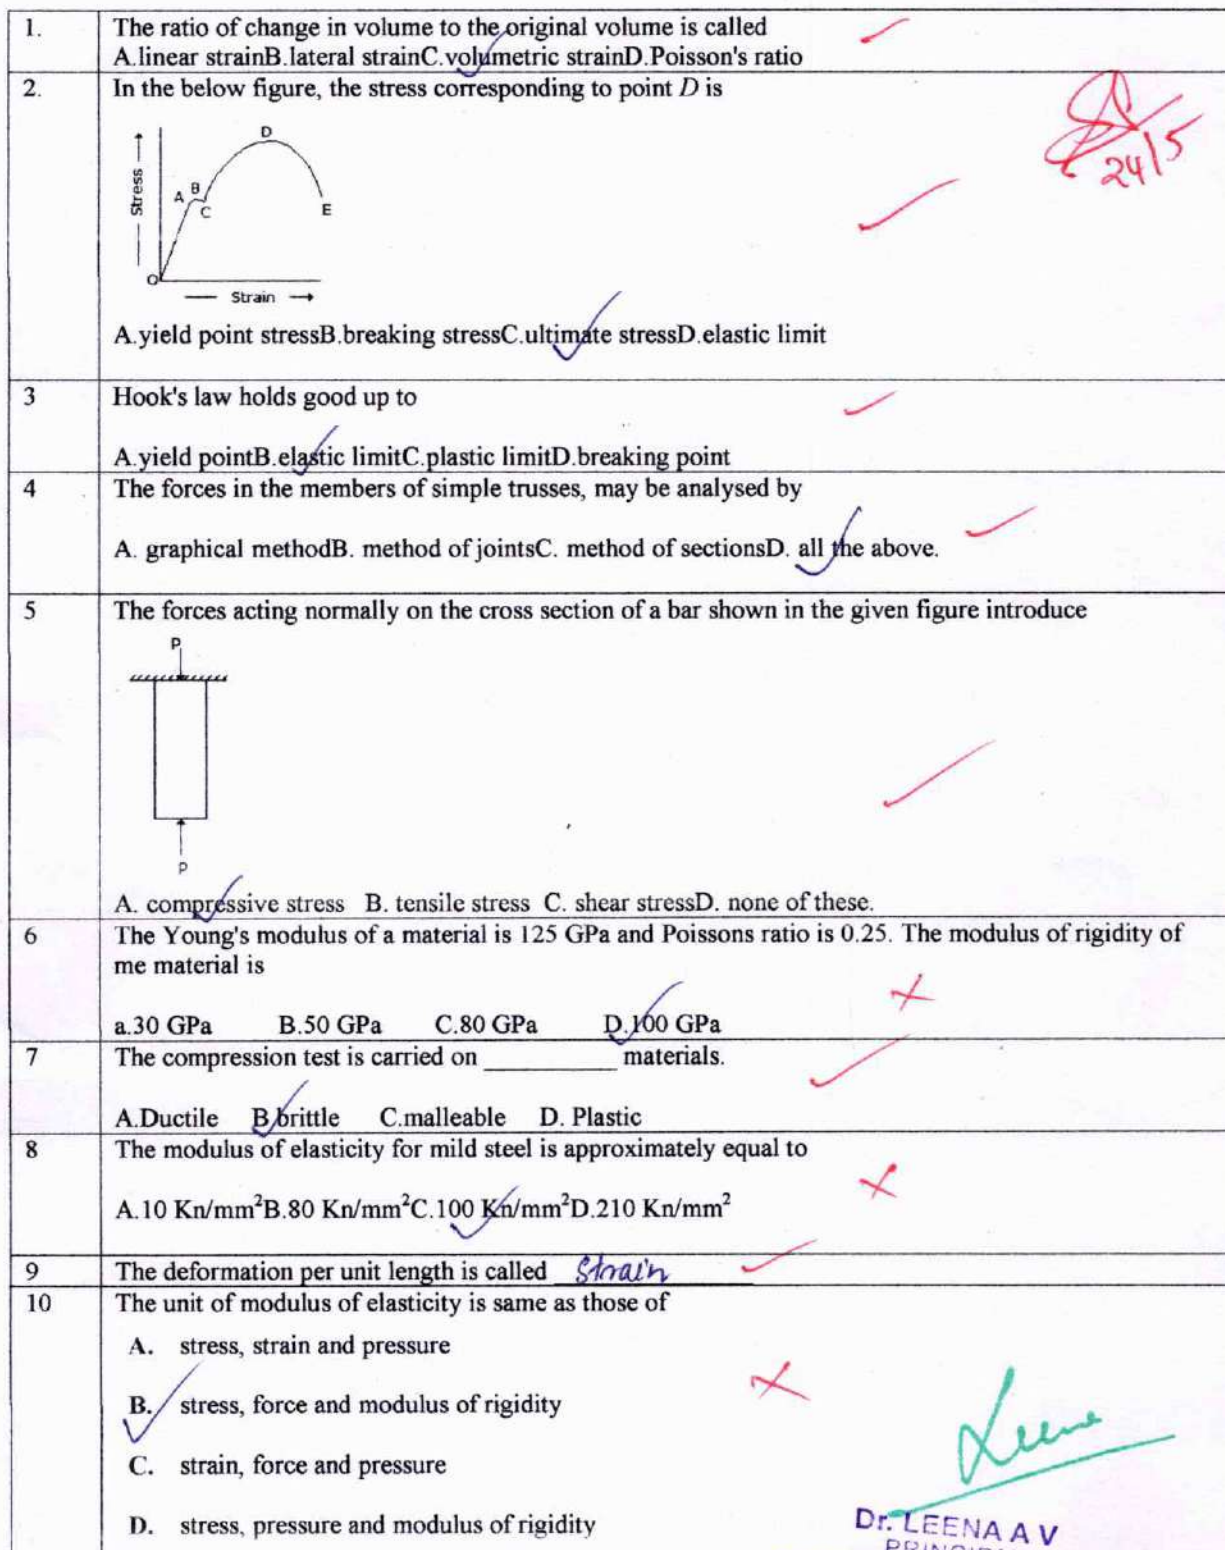 1. The ratio of change in volume to the original volume is called
A.linear strainB.lateral strainC.volumetric strainD.Poisson's ratio
2. In the below figure, the stress corresponding to point D is
D
B
A
C
E
O
Stress
Strain
A.yield point stressB.breaking stressC.ultimate stressD.elastic limit
24/5
3 Hook's law holds good up to
A.yield pointB.elastic limitC.plastic limitD.breaking point
4 The forces in the members of simple trusses, may be analysed by
A. graphical methodB. method of jointsC. method of sectionsD. all the above.
5 The forces acting normally on the cross section of a bar shown in the given figure introduce
P
P
A. compressive stress B. tensile stress C. shear stressD. none of these.
6 The Young's modulus of a material is 125 GPa and Poissons ratio is 0.25. The modulus of rigidity of
me material is
a.30 GPa B.50 GPa C.80 GPa D.100 GPa
7 The compression test is carried on __________ materials.
A.Ductile B.brittle C.malleable D. Plastic
8 The modulus of elasticity for mild steel is approximately equal to
A.10 Kn/mm²B.80 Kn/mm²C.100 Kn/mm²D.210 Kn/mm²
9 The deformation per unit length is called Strain
10 The unit of modulus of elasticity is same as those of
A. stress, strain and pressure
B. stress, force and modulus of rigidity
C. strain, force and pressure
D. stress, pressure and modulus of rigidity
Leena
Dr. LEENA A V